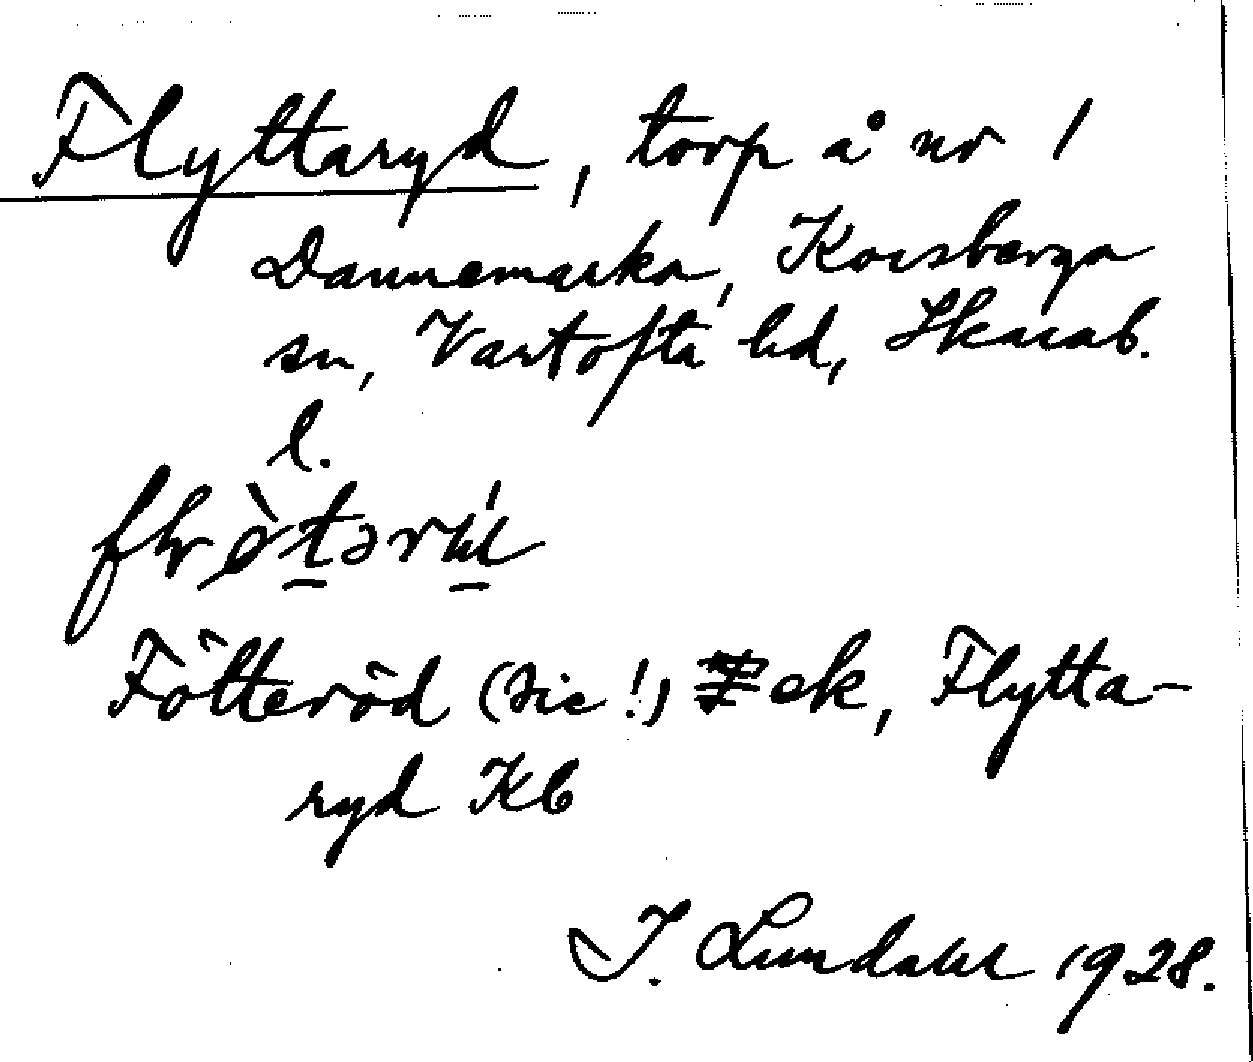 Flyttaryd, torp å nr 1
Dannemarka, Korsberga
sn, Vartofta hd, Skarab.
l.
Fötteröd (sic!) ek, Flytta-
ryd Kb
I. Lundahl 1928.